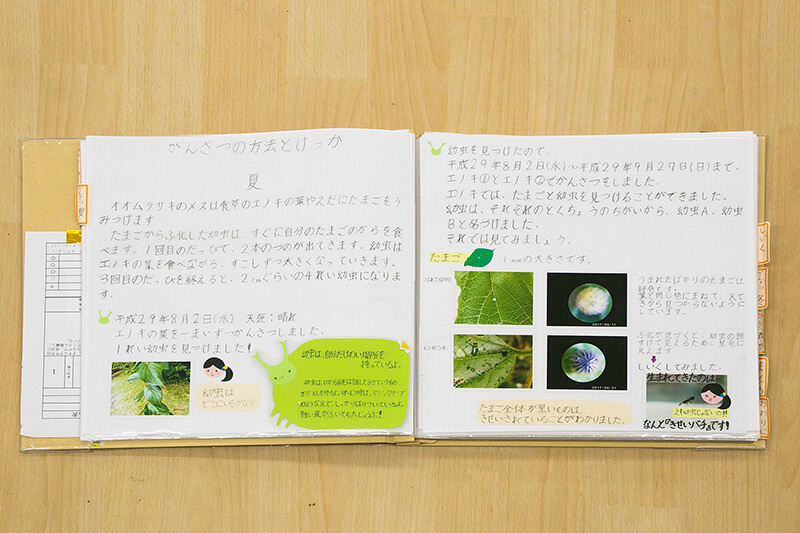 かんさつの方法とけっか
夏
オオムラサキのメスは食草のエノキの葉やえだにたまごをう
みつけます
たまごからふ化した幼虫は、すぐに自分のたまごのからを食
べます。1回目のだっぴで、2本のつのが出てきます。幼虫は
エノキの葉を食べながら、すこしずつ大きくなっていきます。
3回目のだっぴを終えると、2cmぐらいの4れい幼虫になりま
す。
平成29年8月2日(水) 天気:晴れ
エノキの葉を一まいずつかんさつしました。
1れい幼虫を見つけました!
幼虫は
どこにいるかな?
幼虫は、自分だけのいい場所を
持っているよ。
強い風がふいても大じょうぶ!
幼虫を見つけたので、
平成29年8月2日(水)～平成29年9月27日(日)まで、
エノキ①とエノキ②でかんさつをしました。
エノキでは、たまごと幼虫を見つけることができました。
幼虫は、それぞれのとくちょうのちがいから、幼虫A、幼虫
Bと名づけました。
それでは見てみましょう。
たまご
1mmの大きさです。
うまれたばかりのたまごは
緑色です。
葉と同じ色にまねて、天て
きから見つからないように
しています。
ふ化が近づくと、幼虫の顔
がすけて見えるため、黒色に
見えます。
しいくしてみました。
生まれてきたのは
なんと『きせいバチ』です!
たまご全体が黒いものは
きせいされていることがわかりました。